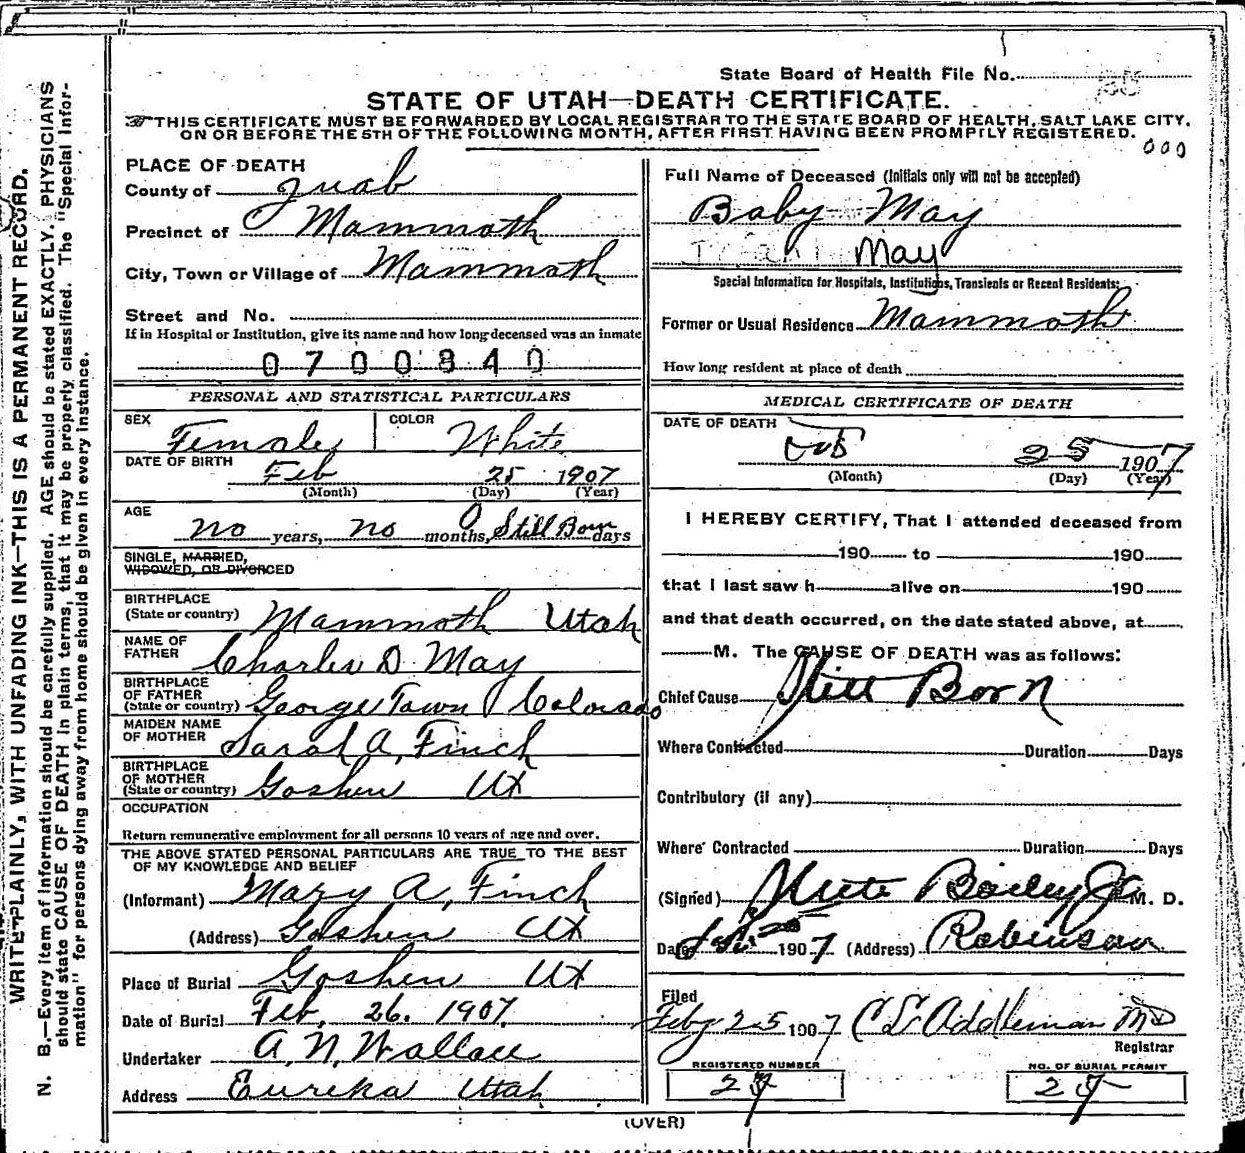 State Board of Health File No.
STATE OF UTAH—DEATH CERTIFICATE.
THIS CERTIFICATE MUST BE FORWARDED BY LOCAL REGISTRAR TO THE STATE BOARD OF HEALTH, SALT LAKE CITY,
ON OR BEFORE THE 5TH OF THE FOLLOWING MONTH, AFTER FIRST HAVING BEEN PROMPTLY REGISTERED.
000
WRITE PLAINLY, WITH UNFADING INK—THIS IS A PERMANENT RECORD.
N. B.—Every item of information should be carefully supplied. AGE should be stated EXACTLY. PHYSICIANS
should state CAUSE OF DEATH in plain terms, that it may be properly classified. The "Special Infor-
mation" for persons dying away from home should be given in every instance.
PLACE OF DEATH
County of Juab
Precinct of Mammoth
City, Town or Village of Mammoth
Street and No.
If in Hospital or Institution, give its name and how long deceased was an inmate
0700840
PERSONAL AND STATISTICAL PARTICULARS
SEX Female COLOR White
DATE OF BIRTH Feb 25 1907
(Month) (Day) (Year)
AGE
no years, no months, Still Born days
SINGLE, MARRIED,
WIDOWED, OR DIVORCED
BIRTHPLACE
(State or country) Mammoth Utah
NAME OF
FATHER Charles D. May
BIRTHPLACE
OF FATHER
(State or country) George Town Colorado
MAIDEN NAME
OF MOTHER Sarah A, Finch
BIRTHPLACE
OF MOTHER
(State or country) Goshen Ut
OCCUPATION
Return remunerative employment for all persons 10 years of age and over.
THE ABOVE STATED PERSONAL PARTICULARS ARE TRUE TO THE BEST
OF MY KNOWLEDGE AND BELIEF
(Informant) Mary A, Finch
(Address) Goshen Ut
Place of Burial Goshen Ut
Date of Burial Feb, 26. 1907.
Undertaker A. N. Wallace
Address Eureka Utah
Full Name of Deceased (Initials only will not be accepted)
Baby May
May
Special Information for Hospitals, Institutions, Transients or Recent Residents:
Former or Usual Residence Mammoth
How long resident at place of death
MEDICAL CERTIFICATE OF DEATH
DATE OF DEATH
Feb 25 1907
(Month) (Day) (Year)
I HEREBY CERTIFY, That I attended deceased from
190 to 190
that I last saw h alive on 190
and that death occurred, on the date stated above, at
M. The CAUSE OF DEATH was as follows:
Chief Cause Still Born
Where Contracted Duration Days
Contributory (if any)
Where Contracted Duration Days
(Signed) Steele Bailey Jr M. D.
Date Feb 25 1907 (Address) Robinson
Filed
Feby 25 1907 C E Addleman MD
Registrar
REGISTERED NUMBER
27
NO. OF BURIAL PERMIT
27
(OVER)